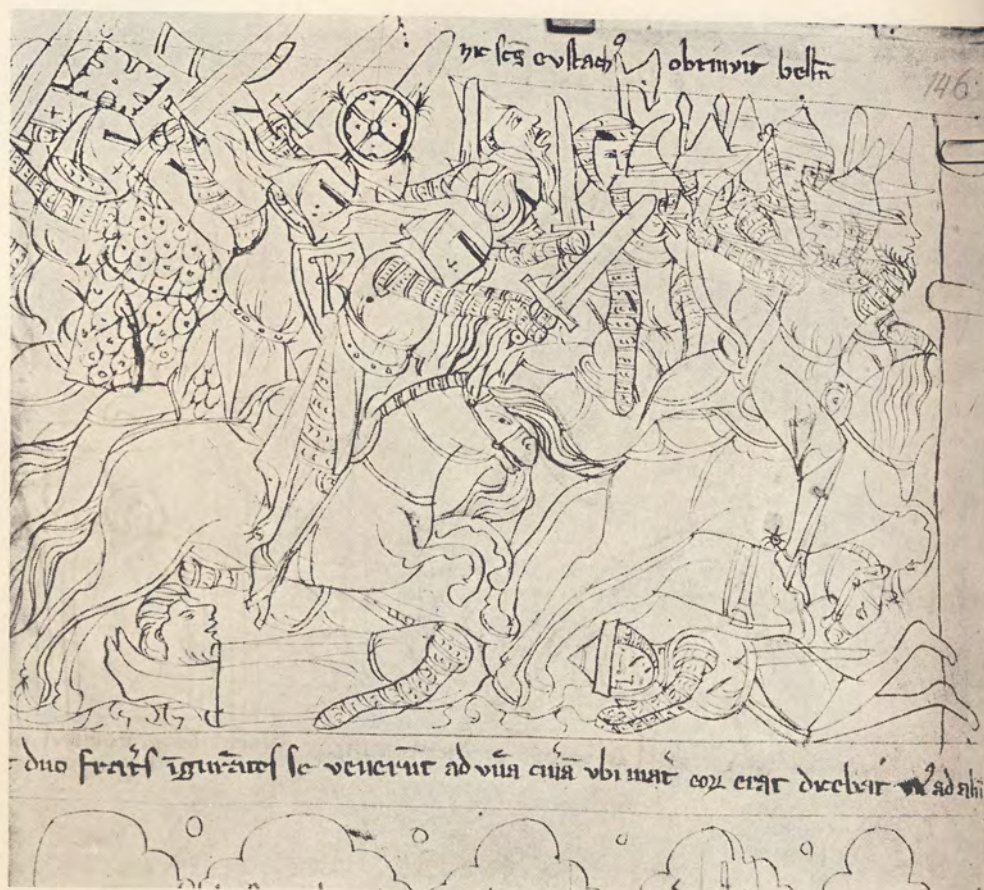 hic scs eustachꝰ obtinuit bellū
146
duo fratrs īgnrātes se venerūt ad unā ciuā ubi mat̄ eoꝝ erat ad